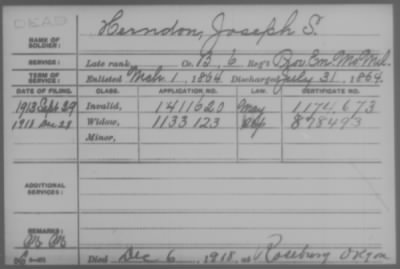 DEAD
NAME OF SOLDIER: Herndon, Joseph S.
SERVICE: Late rank, Co. B, 6 Reg't Prov. En. Mo. Mil.
TERM OF SERVICE: Enlisted Mch. 1, 1864 Discharged July 31, 1864.
DATE OF FILING. CLASS. APPLICATION NO. LAW. CERTIFICATE NO.
1913 Sept 29 Invalid, 1411620 May 1174673
1918 Dec 28 Widow, 1133123 878493
Minor,
ADDITIONAL SERVICES:
REMARKS:
Died Dec 6, 1918, at Roseburg Oregon